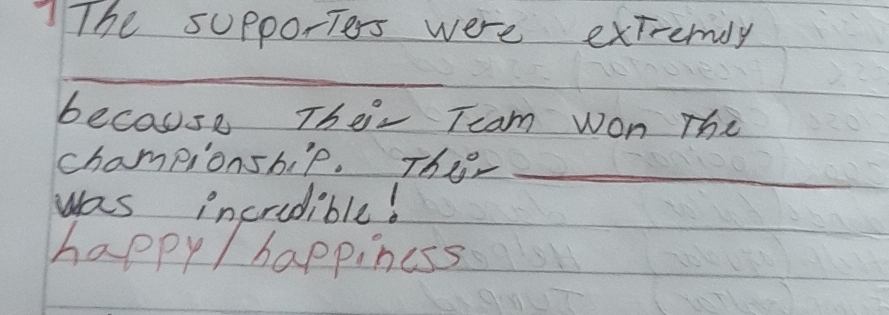 1 The supporters were extremely
____________
because Their Team won The
championship. Their ____________
was incredible!
happy/happiness